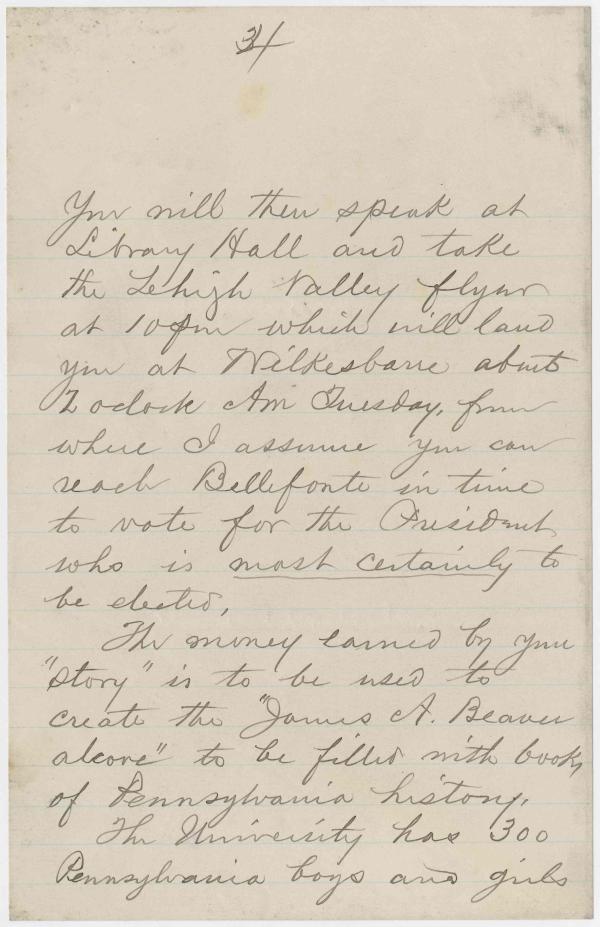 3/
You will then speak at
Library Hall and take
the Lehigh Valley flyer
at 10 pm which will land
you at Wilkesbarre about
2 oclock Am Tuesday, from
where I assume you can
reach Bellefonte in time
to vote for the President
who is most certainly to
be elected.
The money earned by your
"story" is to be used to
create the "James A. Beaver
alcove" to be filled with books
of Pennsylvania history.
The University has 300
Pennsylvania boys and girls